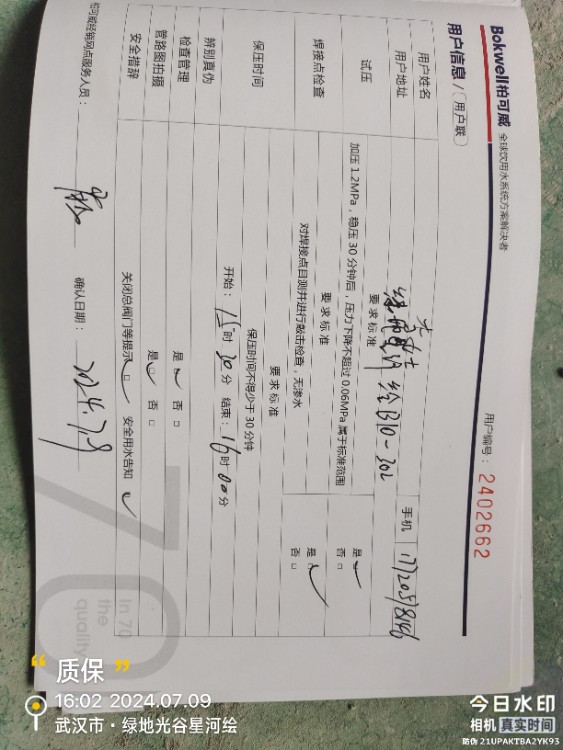 Bokwell柏可威 全球饮用水系统方案解决者
用户编号：2402662
用户信息 /（用户联）
用户姓名 手机 17720518146
用户地址 B10-302
试压 要求标准
加压 1.2MPa，稳压 30 分钟后，压力下降不超过 0.06MPa 属于标准范围 是 ✓ 否 □
焊接点检查 要求标准
对焊接点目测并进行敲击检查，无渗水 是 □ ✓ 否 □
保压时间 要求标准
保压时间不得少于 30 分钟
开始：15 时 30 分 结束：16 时 00 分
辨别真伪 是 ✓ 否 □
检查管理
管路图拍摄 是 ✓ 否 □
安全措辞 关闭总阀门等提示 □ ✓ 安全用水告知 ✓
柏可威经销网点服务人员：
确认日期：2024.7.9
70
In 70
the
quality
“质保”
16:02 2024.07.09
武汉市·绿地光谷星河绘
今日水印
相机 真实时间
防伪 21UPAKTBA2YK93